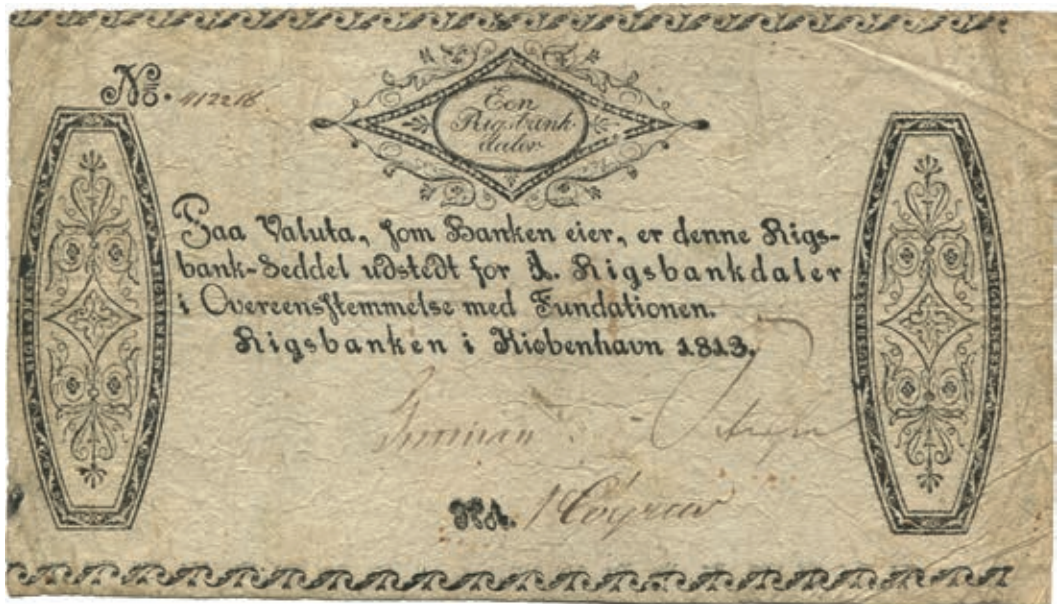 No. 412216
Een
Rigsbank
daler
Paa Valuta, som Banken eier, er denne Rigs-
bank-Seddel udstedt for 1. Rigsbankdaler
i Overeensstemmelse med Fundationen.
Rigsbanken i Kiøbenhavn 1813.